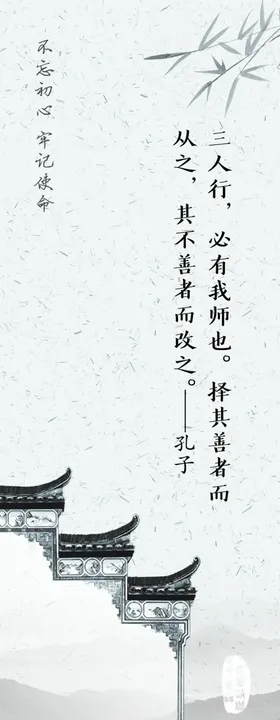 三人行，必有我师也。择其善者而
从之，其不善者而改之。——孔子
不忘初心 牢记使命